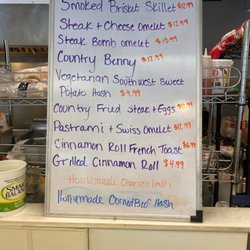 Smoked Brisket Skillet $12.99
Steak + Cheese Omelet $12.99
Steak Bomb omelet $13.99
Country Benny $12.99
Vegetarian Southwest Sweet
Potato Hash $9.99
Country Fried Steak + Eggs
Pastrami + Swiss Omelet $12.99
Cinnamon Roll French Toast
Grilled Cinnamon Roll $4.99
Homemade Chorizo Hash
Homemade Corned Beef Hash